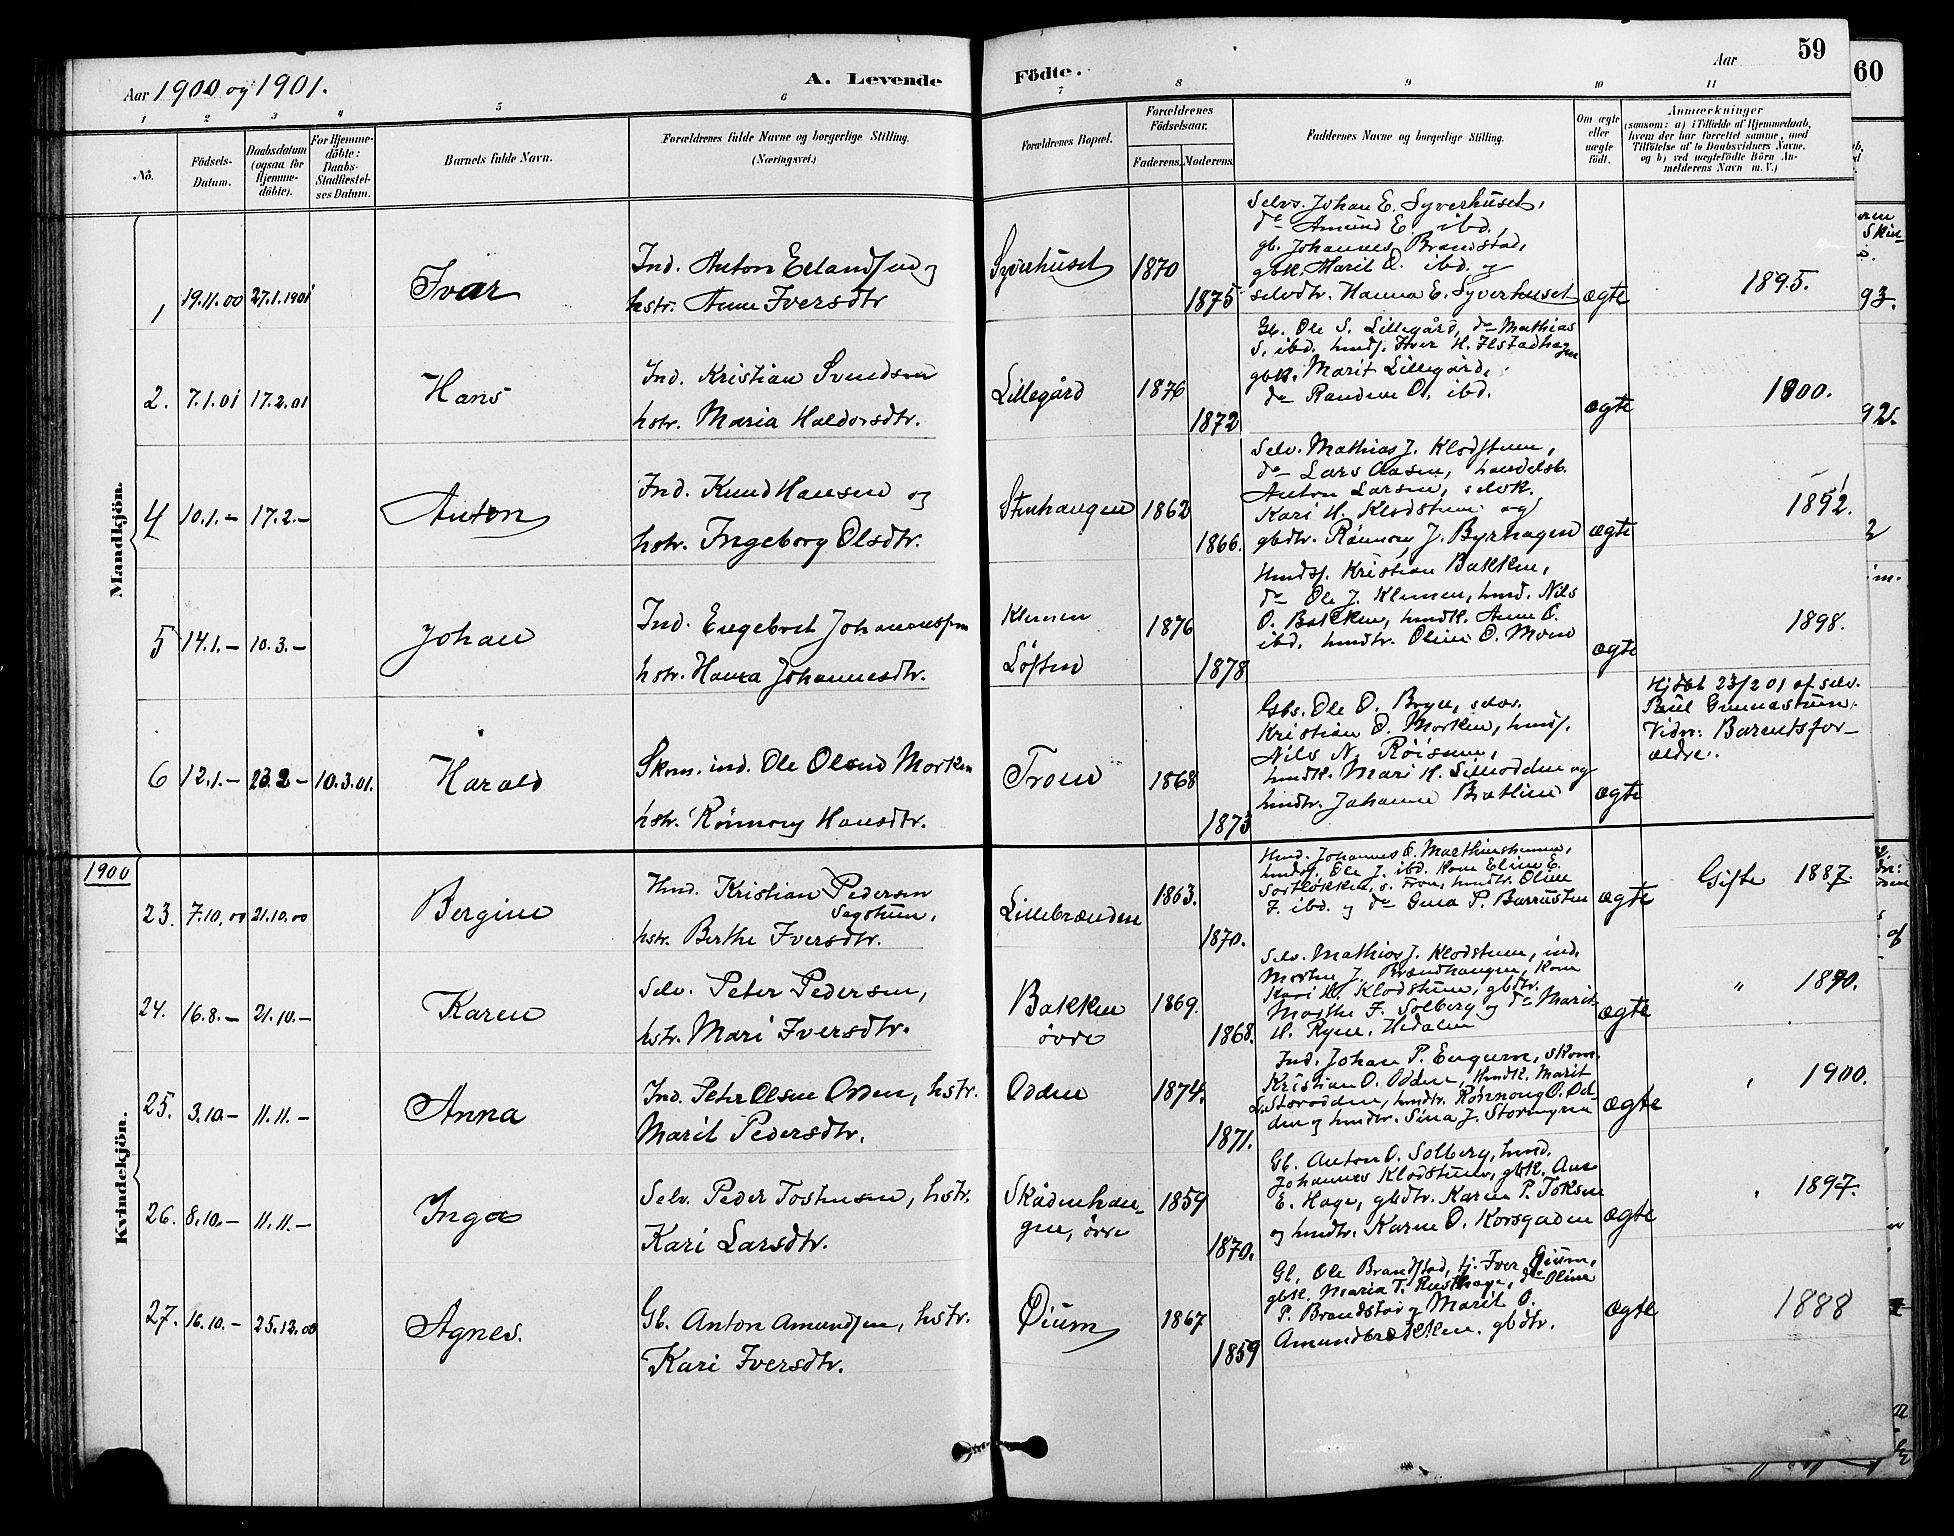 Aar 1900 og 1901.
A. Levende
Födte.
Aar
59
60
1 2 3 4 5 6 7 8 9 10 11
No.
Födsels-
Datum.
Daabsdatum
(ogsaa for
Hjemme-
döbte).
For Hjemme-
döbte:
Daabs-
Stadfæstel-
ses Datum.
Barnets fulde Navn.
Forældrenes fulde Navne og borgerlige Stilling.
(Næringsvei.)
Forældrenes Bopæl.
Forældrenes
Födselsaar.
Faderens.
Moderens.
Faddernes Navne og borgerlige Stilling.
Om ægte
eller
uægte
født.
Anmærkninger
(saasom: a) i Tilfælde af Hjemmedaab,
hvem der har forrettet samme, med
Tilföielse af to Daabsvidners Navne,
og b) ved uægtefödte Börn An-
melderens Navn m. V.)
Mandkjön.
1 19.11.00 27.1.1901 Ivar
Ind. Anton Erlandsen og
hstr. Anne Iversdtr
Syverhuset 1870
1875
Selvs. Johan E. Syverhuset,
do Amund E. ibd.
gb. Johannes Brandstad,
gbk. Marit O. ibd. og
selvdtr. Hanna E. Syverhuset
ægte
1895.
2. 7.1.01 17.2.01 Hans
Ind. Kristian Svendsen
hstr. Maria Haldorsdtr.
Lillegård 1876
1872
Gb. Ole S. Lillegård, do Mathias
S. ibd. hmdsj. Iver H. Ilstadhagen
gbk. Marit Lillegård,
do Randine O. ibd.
ægte
1900.
4 10.1.- 17.2.- Anton
Ind. Knud Hansen og
hstr. Ingeborg Olsdtr.
Stenhaugen 1862
1866.
Selv. Mathias J. Klodstuen,
do Lars Aasen, handelsb.
Anton Larsen, selvk.
Kari H. Klodstuen og
gbdtr. Rønnou J. Byrhagen
ægte
1892.
5 14.1.- 10.3.- Johan
Ind. Engebret Johannessen
hstr. Hanna Johannesdtr.
Klemen
Løften
1876
1878
Hmdsj. Kristian Bakken,
do Ole J. Klemen, hmd. Nils
O. Bakken, hmdk. Anne O.
ibd. hmdtr. Oline O. Moen
ægte
1898.
6 12.1.- 23.2- 10.3.01. Harald
Skom. ind. Ole Olsen Morken
hstr. Rønnoug Hansdtr.
Troen 1868
1873
Gbs. Ole O. Brye, selvs.
Kristian O. Morken, hmdsj.
Nils N. Røisum,
hmdk. Mari H. Lilleodden og
hmdtr. Johanne Brætlien
ægte
Hjdøbt 23/2 01 af selv.
Paul Gunnastuen,
Vidn: Barnetsfor-
ældre.
Kvindekjön.
1900
23. 7.10.00 21.10.00 Bergine
Hmd. Kristian Pedersen
Sagstuen,
hstr. Berthe Iversdtr.
Lillebrænden 1863.
1870.
Hmd. Johannes O. Marthinstuen,
hmdsj. Ole J. ibd. Kone Eline E.
Sortløkken, s. Fron, hmdtr. Oline
F. ibd. og do Gina P. Barrusten
ægte
Gifte 1887.
24. 16.8.- 21.10.- Karen
Selv. Peter Pedersen,
hstr. Mari Iversdtr.
Bakken
øvre
1869.
1868.
Selv. Mathias J. Klodstuen, ind.
Morten J. Brændhaugen, Kone
Kari H. Klodstuen, gbdtr.
Marthe F. Solberg og do Marit
H. Ryen, Hedalen
ægte
" 1890.
25. 3.10- 11.11.- Anna
Ind. Peter Olsen Odden, hstr.
Marit Pedersdtr.
Odden 1874.
1871.
Ind. Johan P. Eugum, skom.
Kristian O. Odden, Hmdk. Marit
L. Storodden, hmdtr. Rønnoug O. Od-
den og hmdtr. Sina J. Stormyren
ægte
" 1900.
26. 8.10.- 11.11.- Inga
Selv. Peder Tostensen, hstr.
Kari Larsdtr.
Skådenhau-
gen, øvre
1859
1870.
Gb. Anton O. Solberg, hmd.
Johannes Klodstuen, gbk. Ane
E. Hage, gbdtr. Karen P. Toksen
og hmdtr. Karen O. Korsgaden
ægte
" 1897.
27. 16.10.- 25.12.00 Agnes.
Gb. Anton Amundsen, hstr.
Kari Iversdtr.
Øium 1867
1859
Gb. Ole Brandstad, tj. Iver Øium,
gbk. Maria T. Rusthage, do Oline
P. Brandstad og Marit O.
Amundbrekken. gbdtr.
ægte
1888